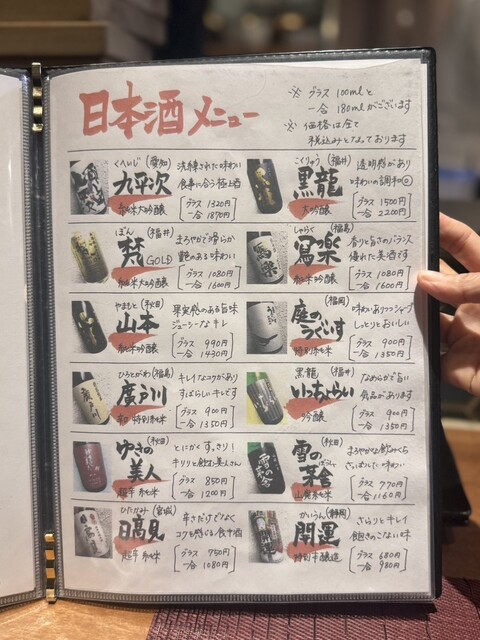 日本酒メニュー
※ グラス 100mlと
一合 180mlがございます
※ 価格は全て
税込みとなっております
くへいじ (愛知)
九平次
純米大吟醸
洗練された味わい
食事に合う極上酒
グラス 1320円
一合 1870円
こくりゅう (福井)
黒龍
大吟醸
透明感があり
味わいの調和◎
グラス 1500円
一合 2200円
ぼん (福井)
梵 GOLD
純米大吟醸
まろやかで滑らか
艶のある味わい
グラス 1080円
一合 1600円
しゃらく (福島)
寫楽
純米吟醸
香りと旨さのバランス
優れた美酒です
グラス 1080円
一合 1600円
やまもと (秋田)
山本
純米吟醸
果実感のある旨味
ジューシーなキレ
グラス 990円
一合 1430円
(福岡)
庭のうぐいす
特別純米
味わいありつつシャープ
しっとりとおいしい
グラス 900円
一合 1350円
ひろとがわ (福島)
廣戸川
特別純米
キレイなコクがあり
すばらしいキレです
グラス 900円
一合 1350円
黒龍 (福井)
いっちょらい
吟醸
なめらかで旨い
気品があります
グラス 900円
一合 1350円
(秋田)
ゆきの美人
超辛 純米
とにかくすっきり!
キリリと飲む美人さん
グラス 850円
一合 1200円
(秋田)
雪の茅舎
山廃純米
まろやかな飲みくち
味わい
グラス 770円
一合 1160円
ひたかみ (宮城)
日高見
超辛 純米
辛さだけでなく
コクを感じる食中酒
グラス 750円
一合 1080円
かいうん (静岡)
開運
特別本醸造
さらりとキレイ
飽きのこない味
グラス 680円
一合 980円